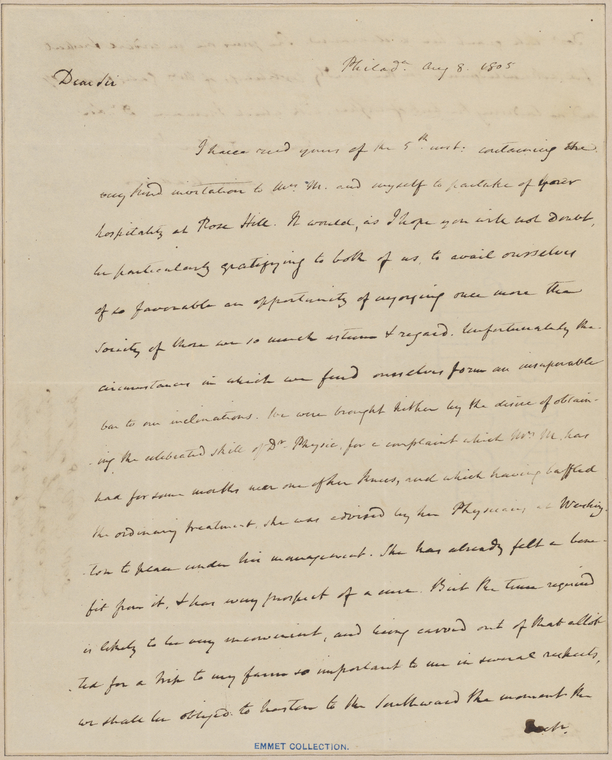 Philada. Aug 8. 1805
Dear Sir
I have recd yours of the 5th inst: containing the
very kind invitation to Mrs M. and myself to partake of your
hospitality at Rose Hill. It would, as I hope you will not doubt,
be particularly gratifying to both of us to avail ourselves
of so favorable an opportunity of enjoying once more the
Society of those we so much esteem & regard. Unfortunately the
circumstances in which we find ourselves form an insuperable
bar to our inclinations. We were brought hither by the desire of obtain-
ing the celebrated skill of Dr. Physic, for a complaint which Mrs M. has
had for some months near one of her knees, and which having baffled
the ordinary treatment, she was advised by her Physicians at Washing-
ton to place under his management. She has already felt a bene-
fit from it, & has every prospect of a cure. But the time required
is likely to be very inconvenient, and being carved out of that allot
ted for a trip to my farm so important to me in several respects,
we shall be obliged to hasten to the Southward the moment the
EMMET COLLECTION.